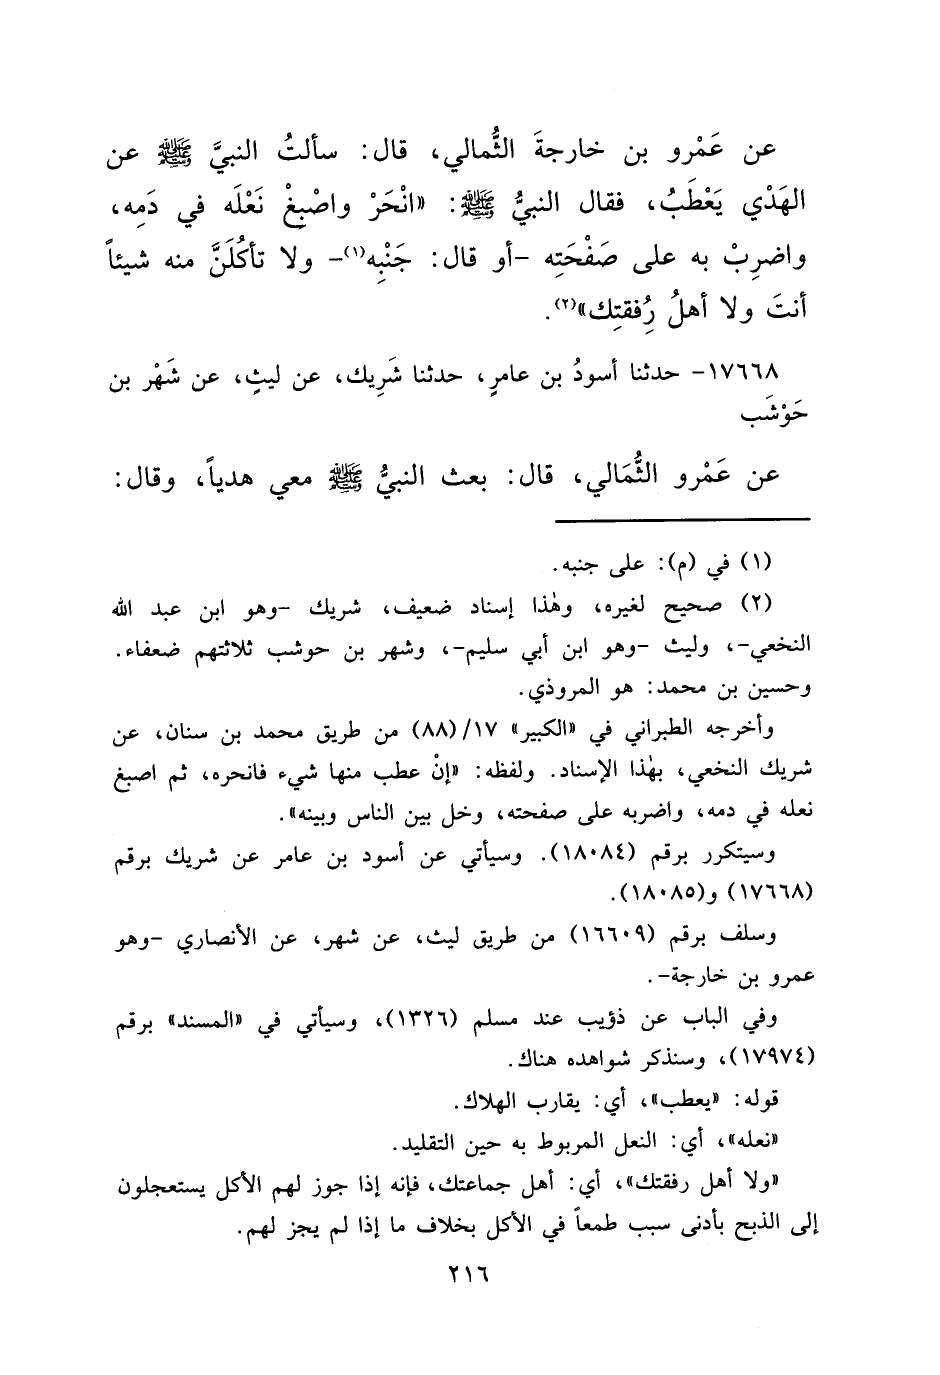 عن عَمْرو بن خارجةَ الثُّمالي، قال: سألتُ النبيَّ ﷺ عن
الهَدْي يَعْطَبُ، فقال النبيُّ ﷺ: «انْحَرْ واصْبِغْ نَعْلَه في دَمِه،
واضرِبْ به على صَفْحَتِه -أو قال: جَنْبِه(١)- ولا تأكُلَنَّ منه شيئاً
أنتَ ولا أهلُ رِفُقتِك»(٢).
١٧٦٦٨- حدثنا أسودُ بن عامرٍ، حدثنا شَرِيك، عن ليثٍ، عن شَهْر بن
حَوْشَب
عن عَمْرو الثُّمَالي، قال: بعث النبيُّ ﷺ معي هدياً، وقال:
(١) في (م): على جنبه.
(٢) صحيح لغيره، وهٰذا إسناد ضعيف، شريك -وهو ابن عبد الله
النخعي-، وليث -وهو ابن أبي سليم-، وشهر بن حوشب ثلاثتهم ضعفاء.
وحسين بن محمد: هو المروذي.
وأخرجه الطبراني في «الكبير» ١٧/(٨٨) من طريق محمد بن سنان، عن
شريك النخعي، بهٰذا الإسناد. ولفظه: «إنْ عطب منها شيء فانحره، ثم اصبغ
نعله في دمه، واضربه على صفحته، وخل بين الناس وبينه».
وسيتكرر برقم (١٨٠٨٤). وسيأتي عن أسود بن عامر عن شريك برقم
(١٧٦٦٨) و(١٨٠٨٥).
وسلف برقم (١٦٦٠٩) من طريق ليث، عن شهر، عن الأنصاري -وهو
عمرو بن خارجة-.
وفي الباب عن ذؤيب عند مسلم (١٣٢٦)، وسيأتي في «المسند» برقم
(١٧٩٧٤)، وسنذكر شواهده هناك.
قوله: «يعطب»، أي: يقارب الهلاك.
«نعله»، أي: النعل المربوط به حين التقليد.
«ولا أهل رفقتك»، أي: أهل جماعتك، فإنه إذا جوز لهم الأكل يستعجلون
إلى الذبح بأدنى سبب طمعاً في الأكل بخلاف ما إذا لم يجز لهم.
٢١٦